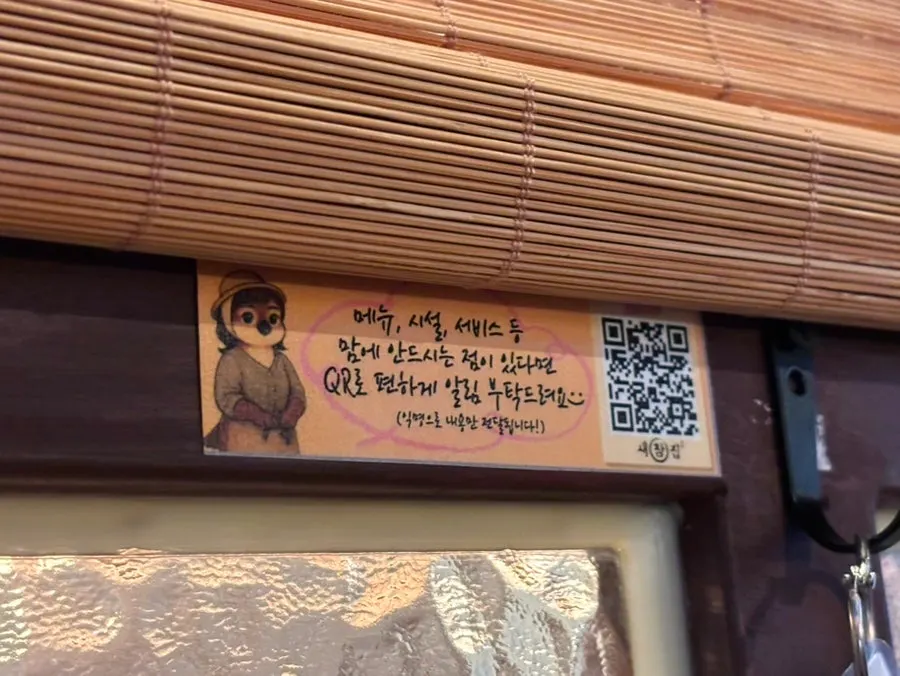 메뉴, 시설, 서비스 등
맘에 안드시는 점이 있다면
QR로 편하게 알림 부탁드려요
(익명으로 내용만 전달됩니다!)
새참집